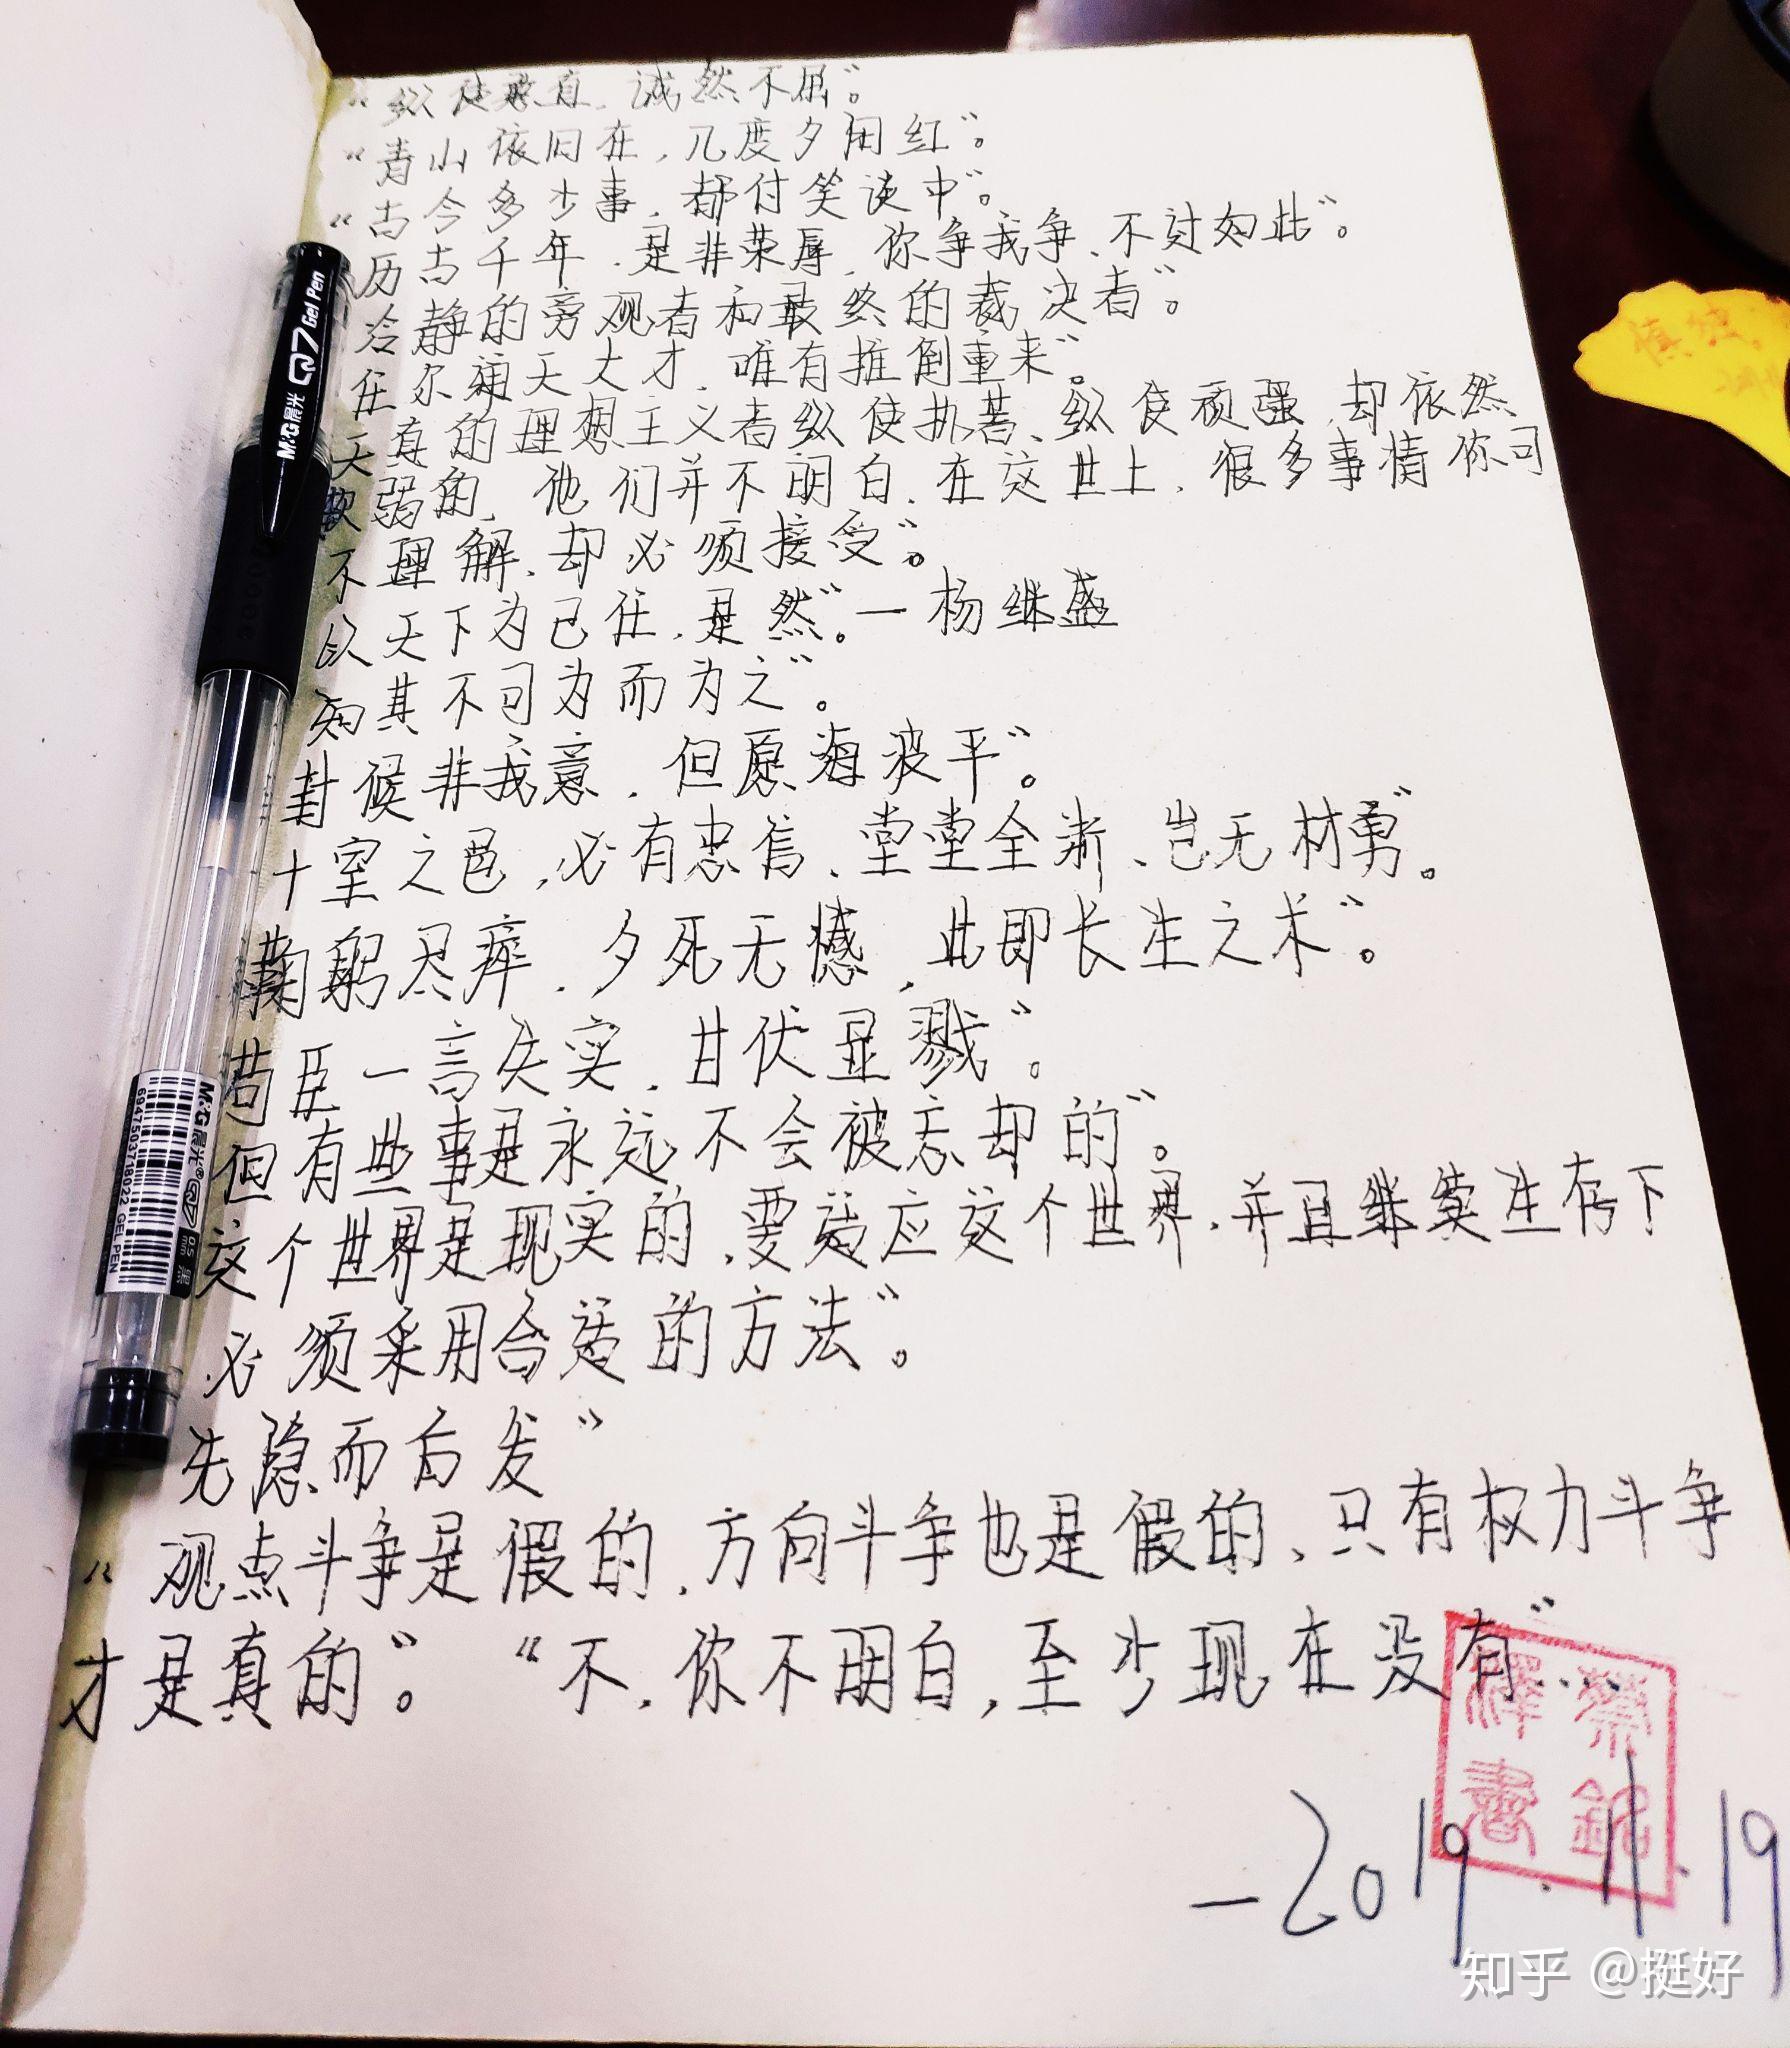 “纵使燕直，诚然不屈”。
“青山依旧在，几度夕阳红”。
“古今多少事，都付笑谈中”。
历古千年，是非荣辱，你争我争、不过如此”。
冷静的旁观者和最终的裁决者”。
任尔通天大才，唯有推倒重来”。
天真的理想主义者纵使执著、纵使顽强，却依然
软弱的，他们并不明白，在这世上，很多事情你可
不理解，却必须接受”。
以天下为己任，是然”。—杨继盛
知其不可为而为之”。
封候非我意，但愿海波平”。
十室之邑，必有忠信、堂堂全浙、岂无材勇”。
鞠躬尽瘁，夕死无憾，此即长生之术”。
苟臣一言失实，甘伏显戮”。
但有些事是永远不会被忘却的”。
这个世界是现实的，要适应这个世界，并且继续生存下
必须采用合适的方法”。
先隐而后发”
“观点斗争是假的，方向斗争也是假的、只有权力斗争
才是真的”。“不，你不明白，至少现在没有”...
—2019.11.19
知乎 @挺好
M&G晨光 Q7 Gel Pen
M&G晨光 Q7 0.5mm 黑
6947503718022 GEL PEN